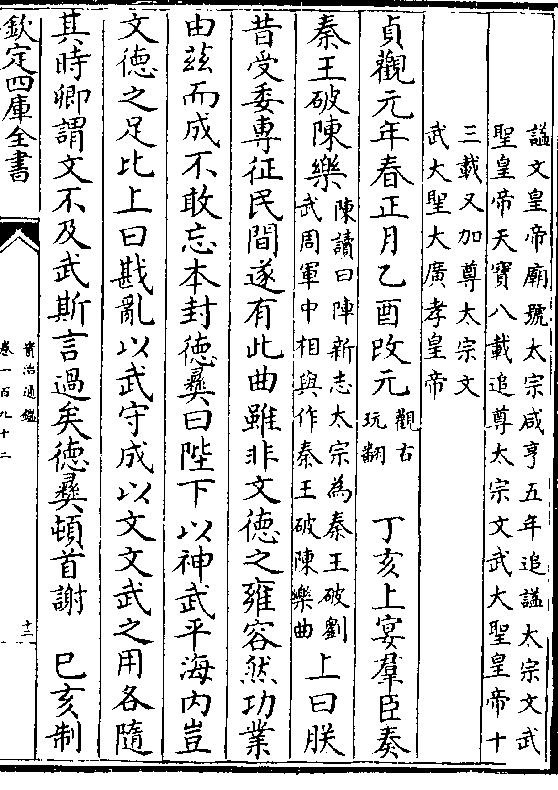 諡文皇帝廟號太宗咸亨五年追諡太宗文武
聖皇帝天寳八載追尊太宗文武大聖皇帝十
三載又加尊太宗文
武大聖大廣孝皇帝
貞觀元年春正月乙酉改元觀古玩翻 丁亥上宴羣臣奏
秦王破陳樂陳讀曰陣新志太宗為秦王破劉武周軍中相與作秦王破陳樂曲上曰朕
昔受委專征民間遂有此曲雖非文德之雍容然功業
由兹而成不敢忘本封德彝曰陛下以神武平海内豈
文德之足比上曰戡亂以武守成以文文武之用各隨
其時卿謂文不及武斯言過矣德彝頓首謝 己亥制
欽定四庫全書
資治通鑑
卷一百九十二
十三